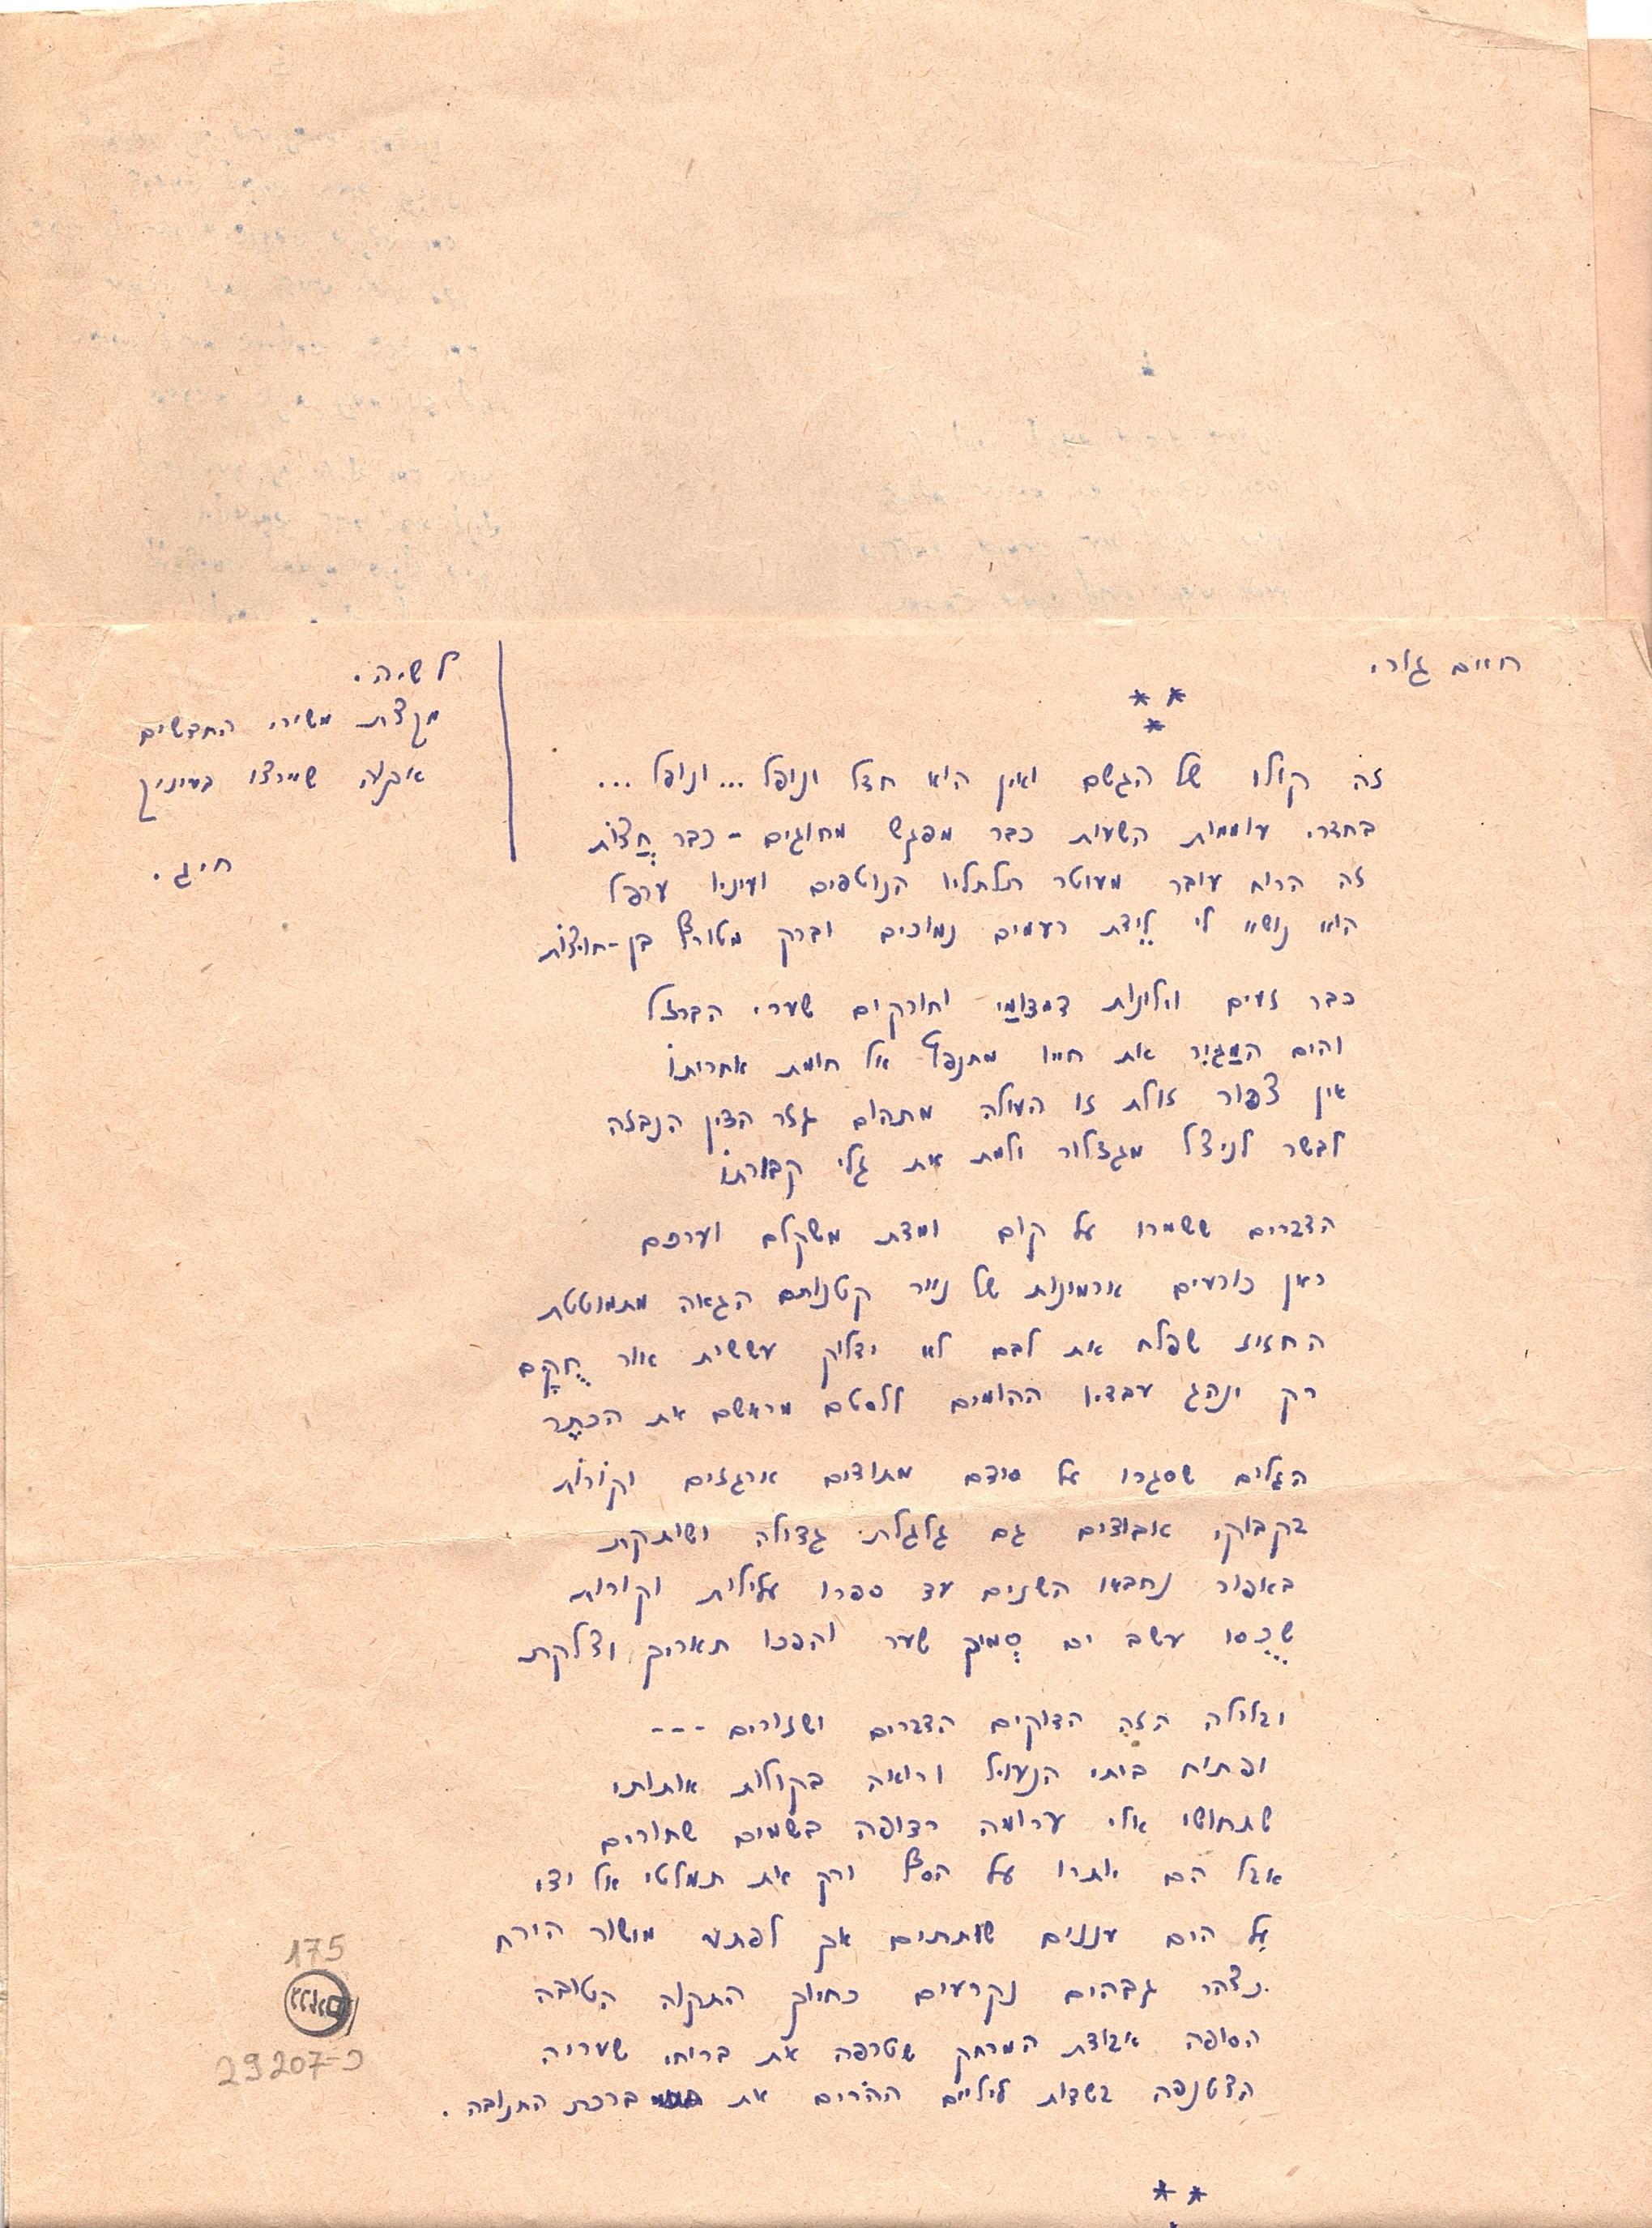 חיים גורי
* *
*
זה קולו של הגשם ואין הוא חדל ונופל... ונופל...
בחדרי עוממות השעות כבר מפגש מחוגים - כבר חֲצוֹת
זה הרוח עובר מעוטר תלתליו הנוטפים ועיניו ערפל
הוא נושא לי לֵידת רעמים נמוכים וברק מטורף בן-חוצוֹת
כבר זעים וילונות דמדומַי וחורקים שערי הברזל
והים המַגיר את חייו מתנפץ אל חומת אחריתוֹ
אין צפור זולת זו העולה מתהום גזר הדין הנבזה
לבשר לניצל מגדלור ולמת את גלי קבורתוֹ
הדברים ששמרו על קום ומדת משקלם וערכם
כאן כורעים ארמונות של נייר קטנותם הגאה מתמוטטת
החזיז שפלח את לבם לא ידלוק עששית אור חֻקָם
רק ינהג עבדיו ההומים ללסטם מראשם את הכתֶר
הגלים שסגרו על סודם מתודים ארגזים וקוֹרוֹת
בקבוקי אבודים גם גלגלת גדולה ושותקת
באפור נחבאו השנים עד ספרו עלילות וקורות
שֶכִסו עשב ים סְמיך שער והפכו תאריך וצלקת
ובלילה הזה הדוקים הדברים ושזורים - - -
ופתוח ביתי הנעול ורואה בקולות אותותי
שתחושי אלי ערומה רצופה בשמים שחורים
אבל הם יתרו על הסף ורק את תמלטי אל ידי
על הים עננים שותתים אך לפתע מושור הירח
גבהים נקרעים כחיוך התקוה הטובה
הסופה אבודת המרחק שטרפה את בריחי שעריה
הצטנפה בשדות ליליים ההרים את ברכת התנובה.
* *
לשיה.
מקצת משירי החדשים
אקוה שיירצו בעיניך
ח״ג.
175
גנזים
29207-כ